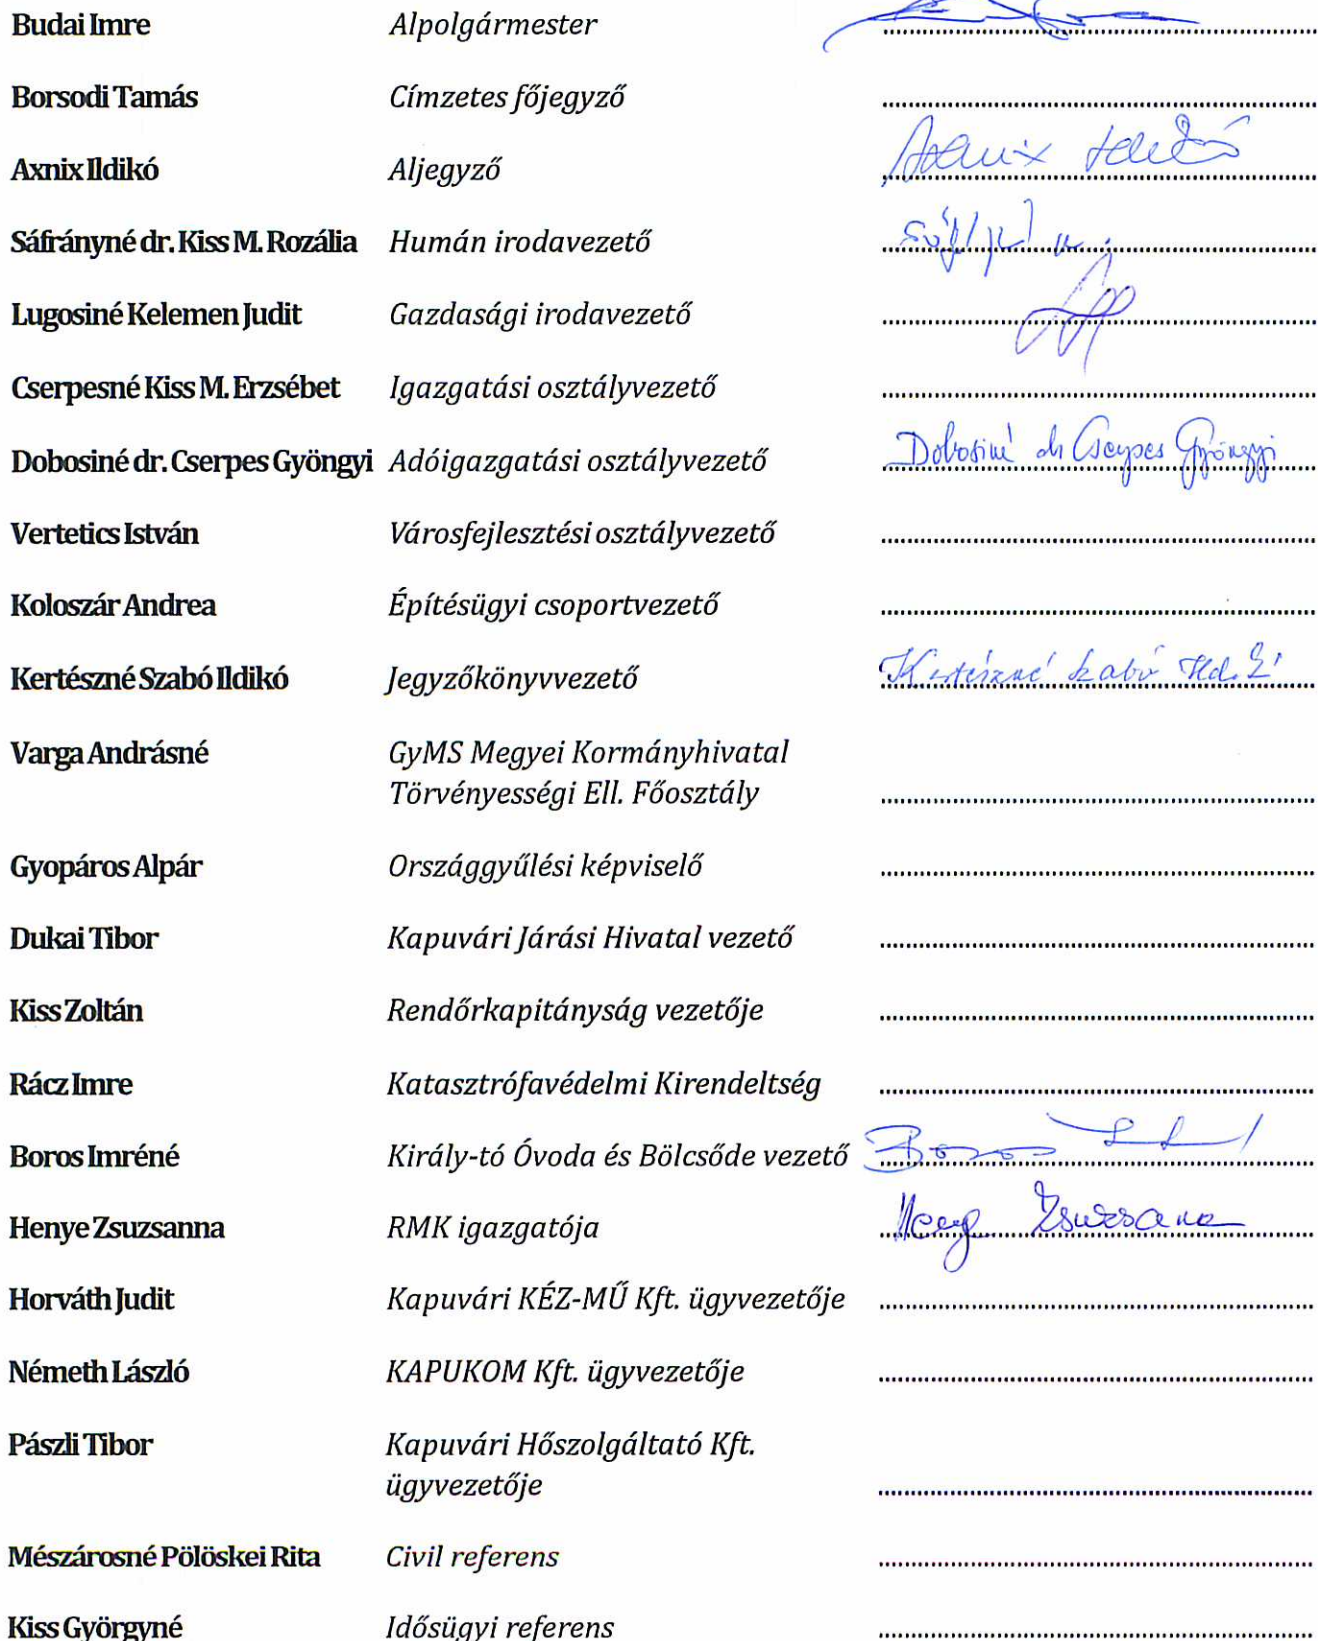 Budai Imre Alpolgármester
Borsodi Tamás Címzetes főjegyző
Axnix Ildikó Aljegyző Axnix Ildikó
Sáfrányné dr. Kiss M. Rozália Humán irodavezető
Lugosiné Kelemen Judit Gazdasági irodavezető
Cserpesné Kiss M. Erzsébet Igazgatási osztályvezető
Dobosiné dr. Cserpes Gyöngyi Adóigazgatási osztályvezető Dobosiné dr Cserpes Gyöngyi
Vertetics István Városfejlesztési osztályvezető
Koloszár Andrea Építésügyi csoportvezető
Kertészné Szabó Ildikó Jegyzőkönyvvezető Kertészné Szabó Ildikó
Varga Andrásné GyMS Megyei Kormányhivatal
Törvényességi Ell. Főosztály
Gyopáros Alpár Országgyűlési képviselő
Dukai Tibor Kapuvári Járási Hivatal vezető
Kiss Zoltán Rendőrkapitányság vezetője
Rácz Imre Katasztrófavédelmi Kirendeltség
Boros Imréné Király-tó Óvoda és Bölcsőde vezető Boros
Henye Zsuzsanna RMK igazgatója Zsuzsanna
Horváth Judit Kapuvári KÉZ-MŰ Kft. ügyvezetője
Németh László KAPUKOM Kft. ügyvezetője
Pászli Tibor Kapuvári Hőszolgáltató Kft.
ügyvezetője
Mészárosné Pölöskei Rita Civil referens
Kiss Györgyné Idősügyi referens